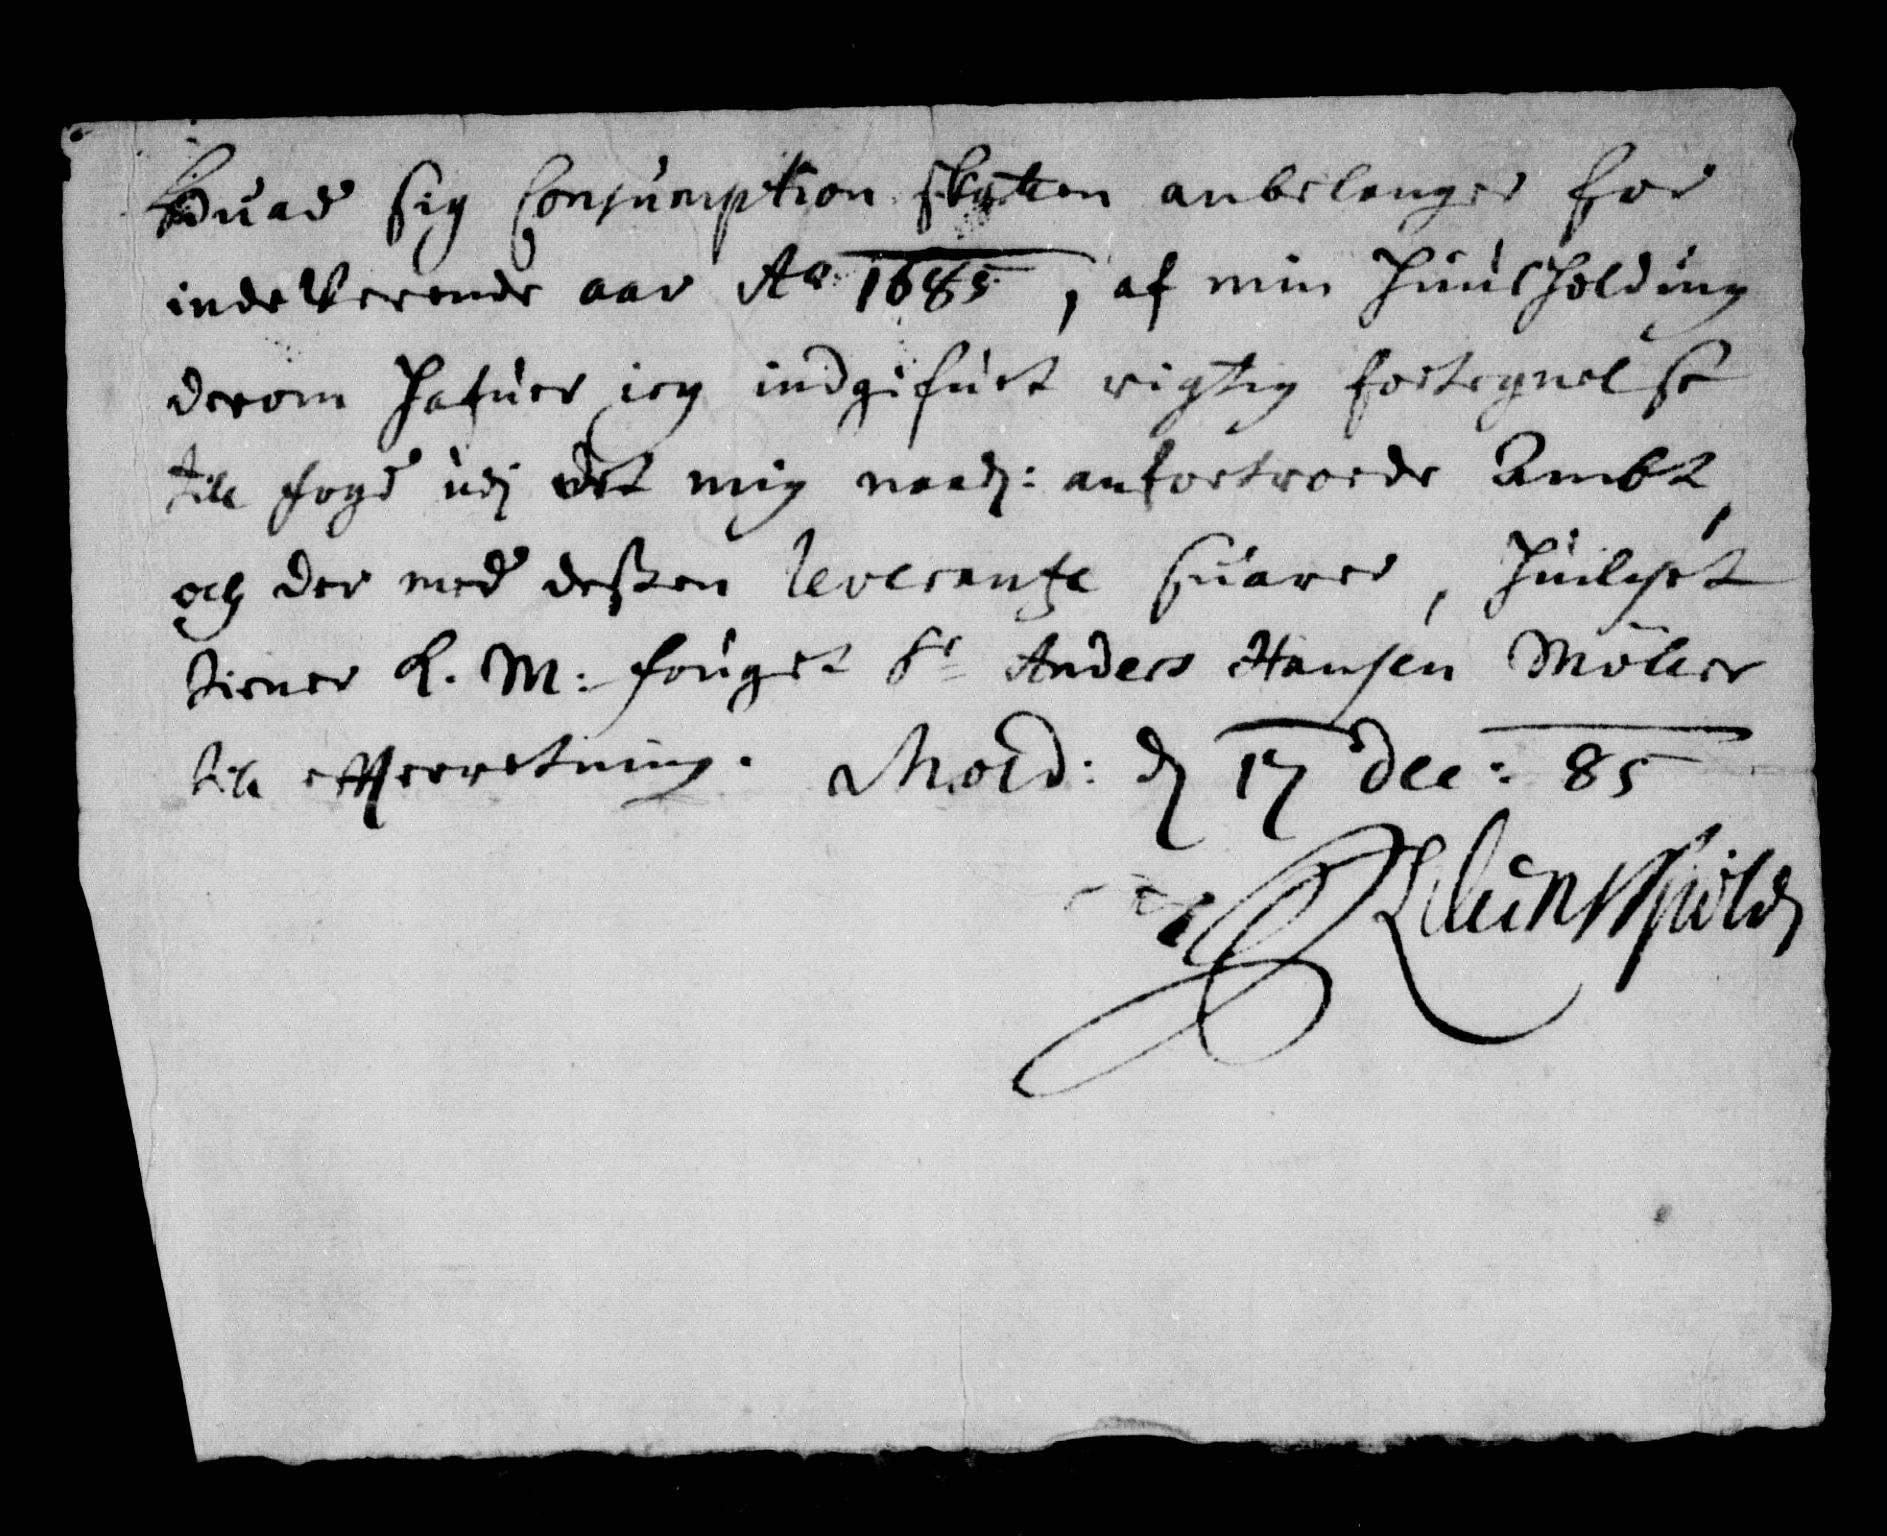 Huad sig Consumption skatten anbelanger for
indeVerende aar Ao 1685, af min huusholding
derom hafuer ieg indgifuet rigtig fortegnelse
till fogd udj det mig naad: anfortroede Ambt,
och der med dessen leverantze suarer, huilchet
tiener K. M: fouget Sr Anders Hansen Möller
till effterretning. Mold: d 17 Dec: 85